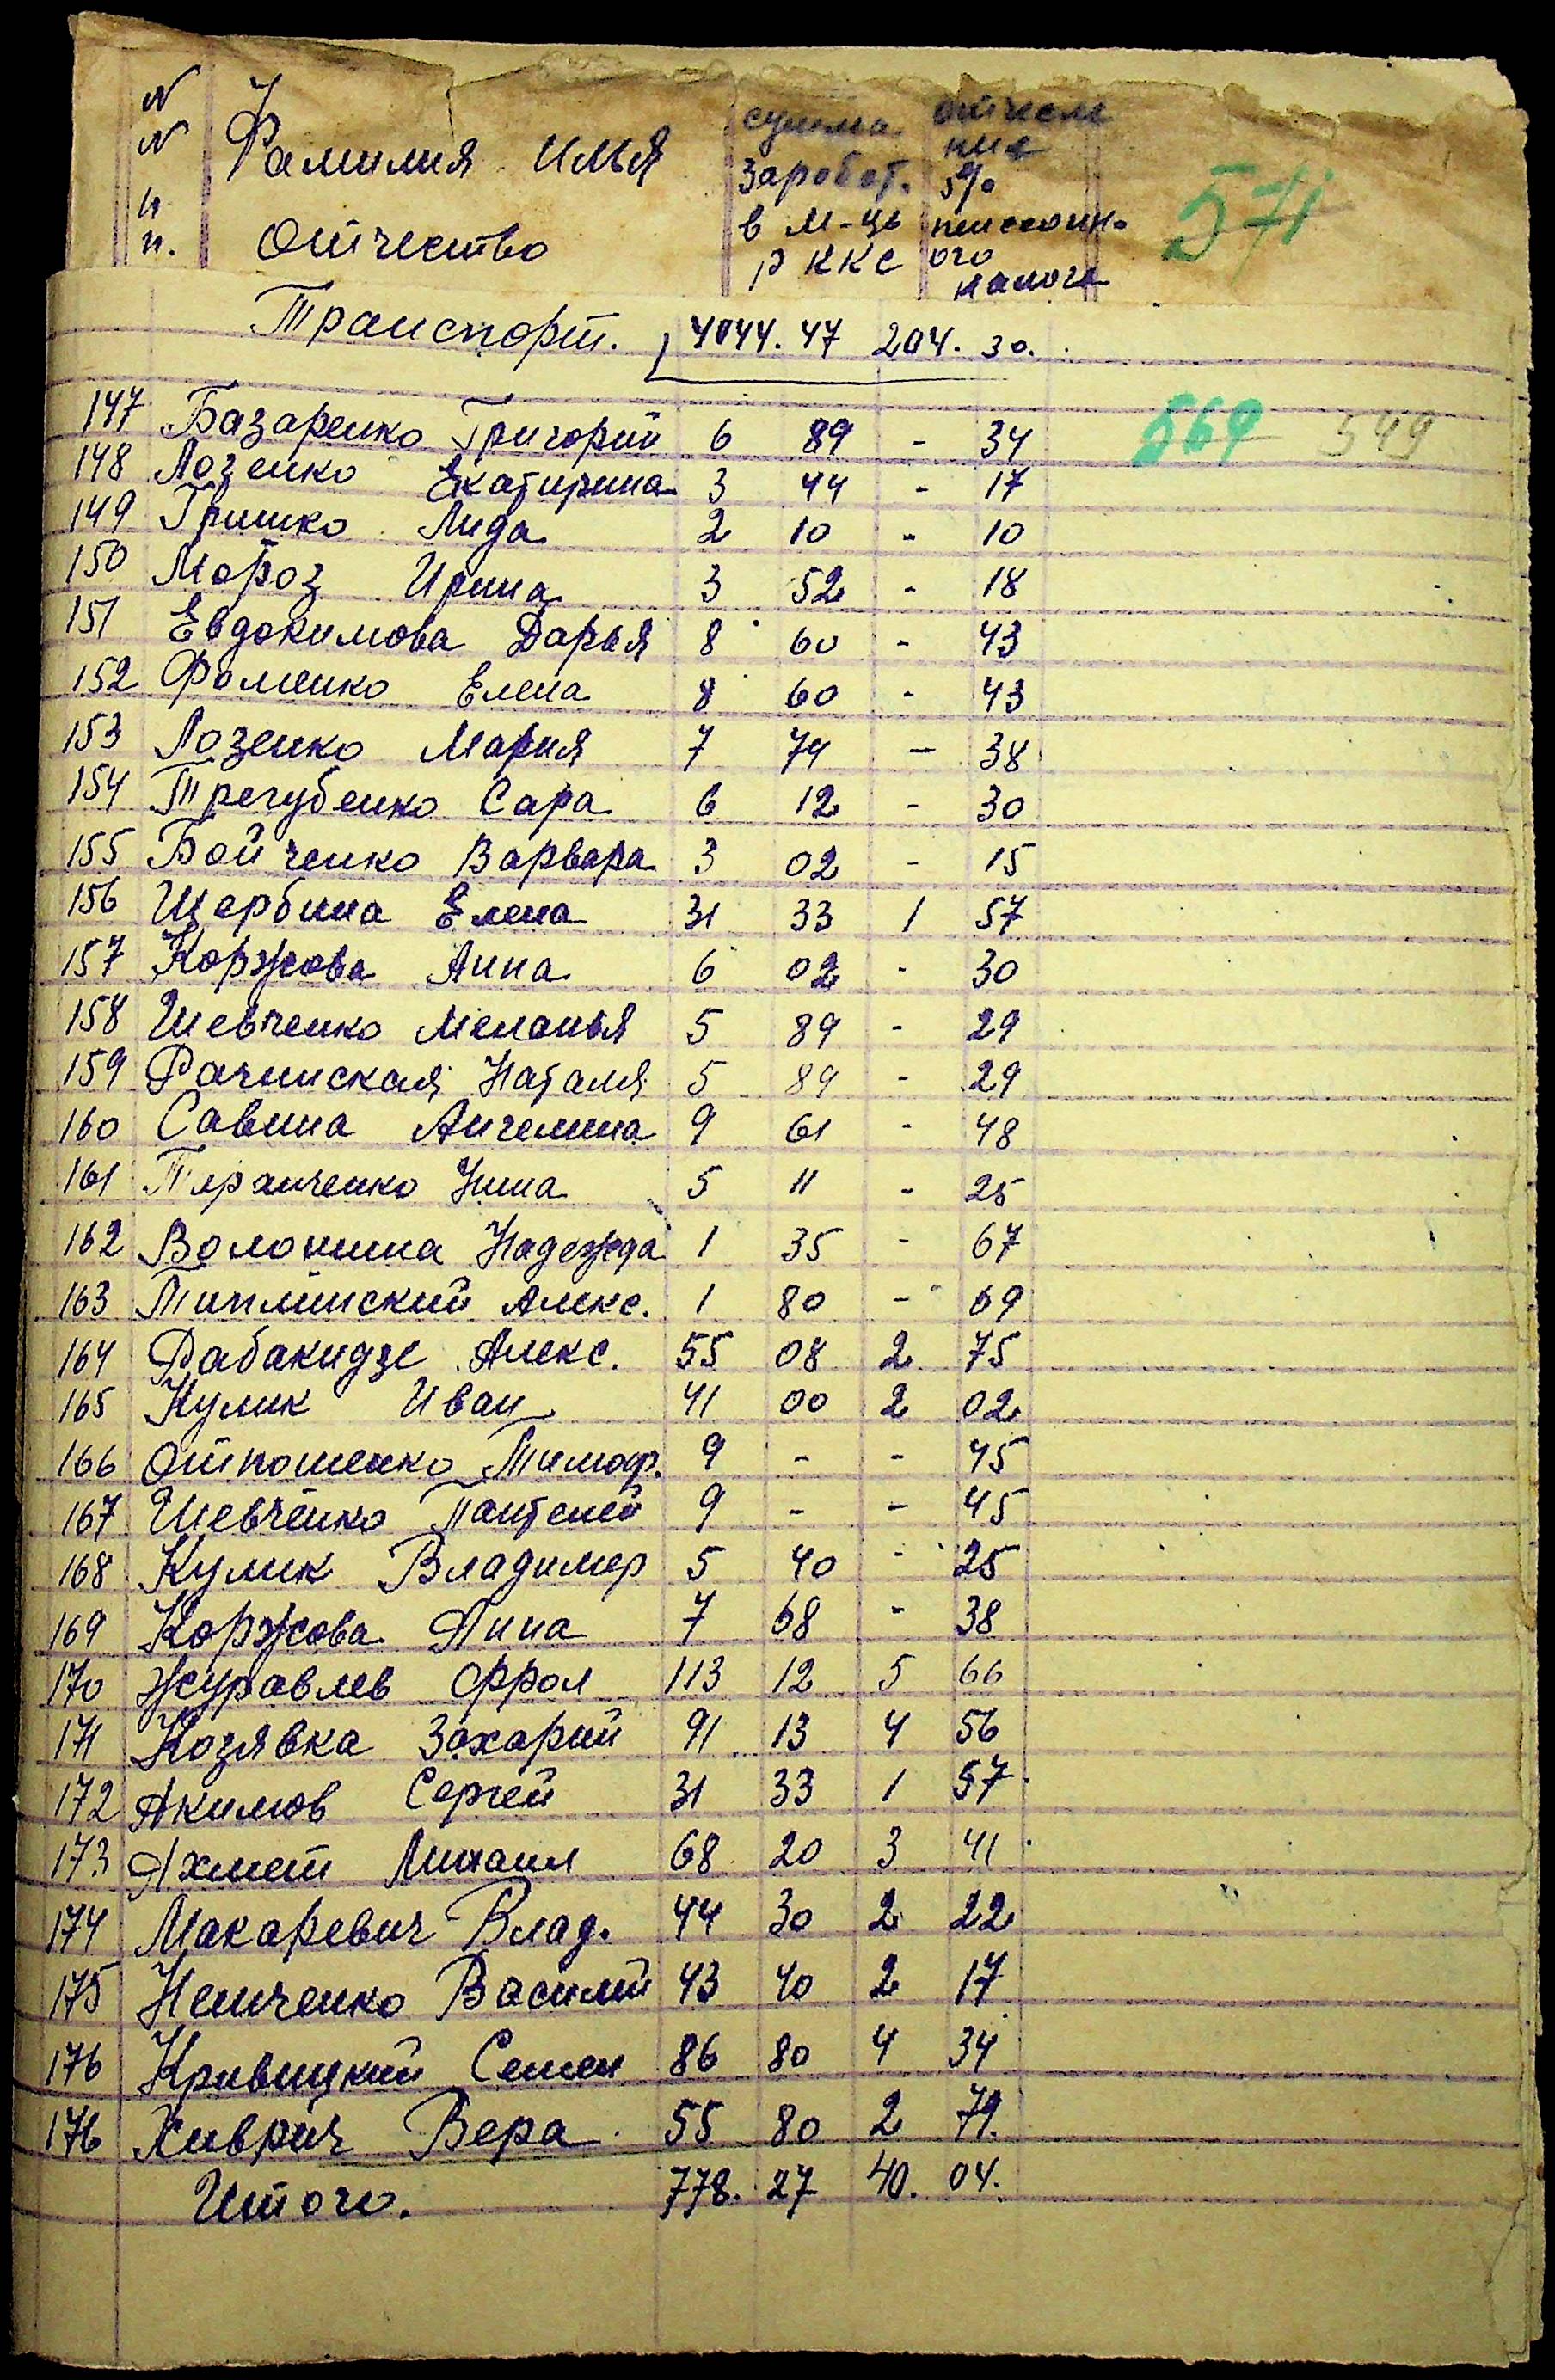 N
N
п.
п.
Фамилия имья
отчество
сумма
заробот.
в м-це
р ккс
отчесле
ния
5%
ого
налога
571
Транспорт. 4044. 47 204. 30.
569 549
147 Базаренко Григорий 6 89 - 34
148 Лозенко Екатирина 3 44 - 17
149 Гришко Лида 2 10 - 10
150 Мороз Ирина 3 52 - 18
151 Евдокимова Дарья 8 60 - 43
152 Фоменко Елена 8 60 - 43
153 Лозенко Мария 7 74 - 38
154 Трегубенко Сара 6 12 - 30
155 Бойченко Варвара 3 02 - 15
156 Щербина Елена 31 33 1 57
157 Коржова Анна 6 02 - 30
158 Шевченко Меланья 5 89 - 29
159 Рачинская Наталя 5 89 - 29
160 Савина Ангелина 9 61 - 48
161 Нина 5 11 - 25
162 Волокина Надежда 1 35 - 67
163 Типлинский Алекс. 1 80 - 69
164 Рабакидзе Алекс. 55 08 2 75
165 Кулик Иван 41 00 2 02
166 Отношенко Тимоф. 9 - - 45
167 Шевченко Пантелей 9 - - 45
168 Кулик Владимер 5 40 - 25
169 Коржова Анна 7 68 - 38
170 Журавлев Фрол 113 12 5 66
171 Козявка Захарий 91 13 4 56
172 Акимов Сергей 31 33 1 57
173 Ахмет Михаил 68 20 3 41
174 Макаревич Влад. 44 30 2 22
175 Немченко Василий 43 40 2 17
176 Кривицкий Семен 86 80 4 34
176 Хиврич Вера 55 80 2 79.
Итого. 778. 27 40. 04.